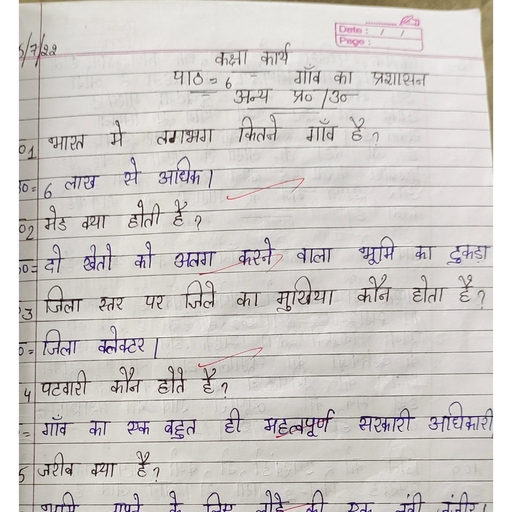 Date: / /
Page:
/7/22
कक्षा कार्य
पाठ = 6 गाँव का प्रशासन
अन्य प्र० / उ०
01 भारत मे लगभग कितने गाँव है?
उ0= 6 लाख से अधिक।
02 मेड क्या होती है?
उ0= दो खेतो को अलग करने वाला भूमि का टुकड़ा
3 जिला स्तर पर जिले का मुखिया कौन होता है?
0= जिला क्लेक्टर।
4 पटवारी कौन होते है?
= गाँव का एक बहुत ही महत्वपूर्ण सरकारी अधिकारी
5 जरीब क्या है?
के लिए लोहे की एक